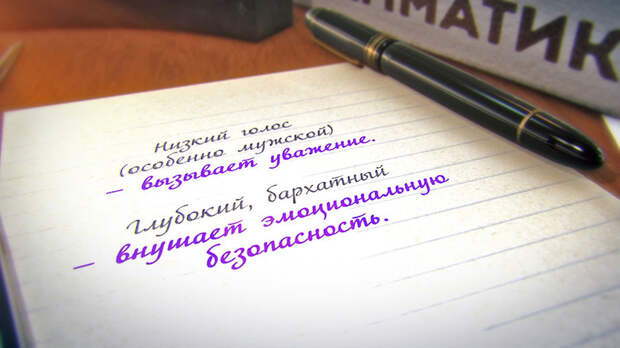 ММАТИК
Низкий голос
(особенно мужской)
– вызывает уважение.
Глубокий, бархатный
– внушает эмоциональную
безопасность.